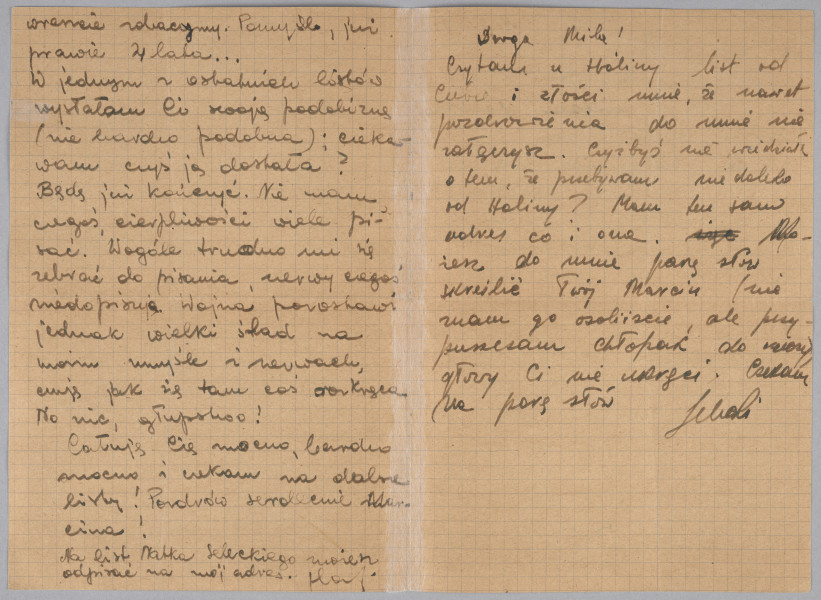 wreszcie zobaczymy. Pomyśl, już
prawie 4 lata...
W jednym z ostatnich listów
wysłałam Ci swoją podobiznę
(nie bardzo podobna); cieka-
wam czyś ją dostała?
Będę już kończyć. Nie mam
czegoś cierpliwości wiele pi-
sać. Wogóle trudno mi się
zebrać do pisania, nerwy czegoś
niedopisują. Wojna pozostawi
jednak wielki ślad na
moim umyśle i nerwach,
czuję jak się tam coś rozkręca
No nic, głupstwo!
Całuję Cię mocno, bardzo
mocno i czekam na dalsze
listy! Pozdrów serdecznie Mar-
cina!
Na list Natka Seleckiego możesz
odpisać na mój adres.
Droga Mila!
Czytam u Haliny list od
Ciebie i złości mnie, że nawet
pozdrowienia do mnie nie
załączysz. Czyżbyś nie wiedziała
o tem, że przebywam niedaleko
od Haliny? Mam ten sam
adres co i ona. Mo-
żesz do mnie parę słów
skreślić Twój Marcin (nie
znam go osobiście, ale przy-
puszczam chłopak do rzeczy)
głowy Ci nie ukręci. Czekam
na parę słów